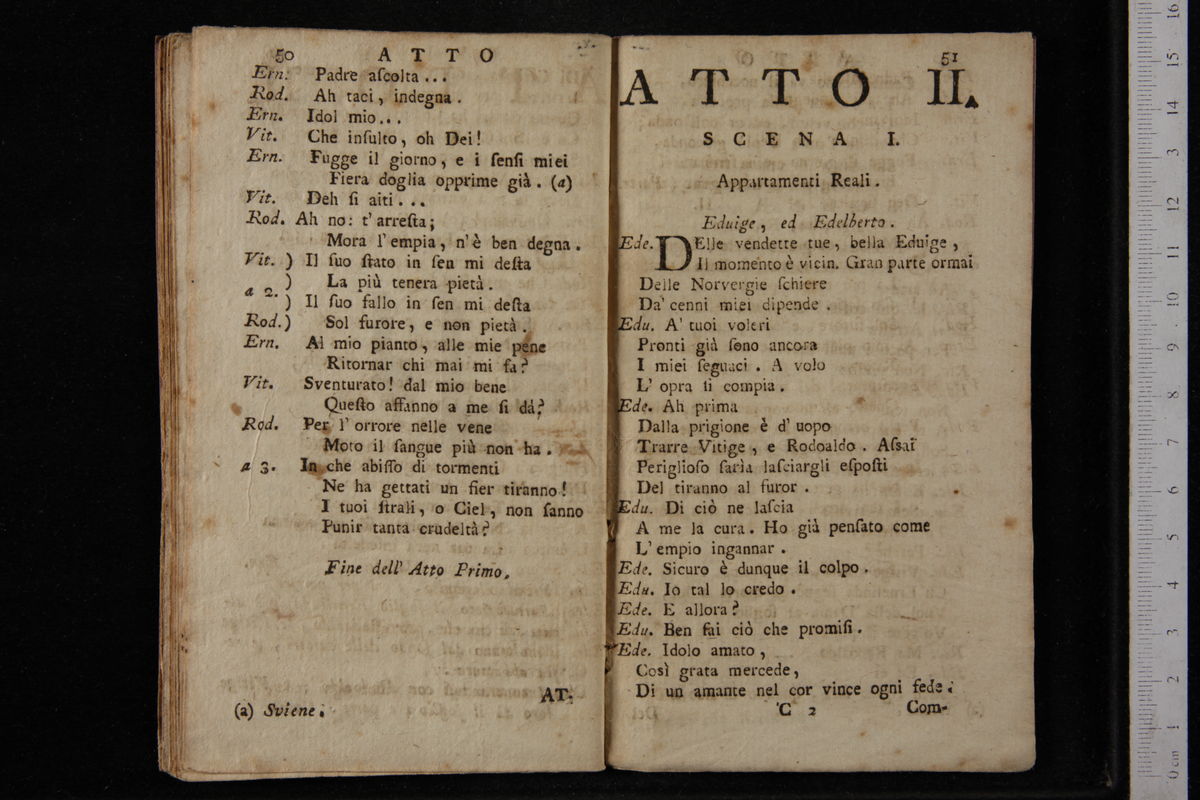 50 ATTO
Ern. Padre aſcolta...
Rod. Ah taci, indegna.
Ern. Idol mio...
Vit. Che inſulto, oh Dei!
Ern. Fugge il giorno, e i ſenſi miei
Fiera doglia opprime già. (a)
Vit. Deh ſi aiti...
Rod. Ah no: t'arreſta;
Mora l'empia, n'è ben degna.
Vit. ) Il ſuo ſtato in ſen mi deſta
) La più tenera pietà.
a 2.
) Il ſuo fallo in ſen mi deſta
Rod.) Sol furore, e non pietà.
Ern. Al mio pianto, alle mie pene
Ritornar chi mai mi fa?
Vit. Sventurato! dal mio bene
Queſto affanno a me ſi dà?
Rod. Per l'orrore nelle vene
Moto il ſangue più non ha.
a 3. In che abiſſo di tormenti
Ne ha gettati un fier tiranno!
I tuoi ſtrali, o Ciel, non ſanno
Punir tanta crudeltà?
Fine dell' Atto Primo.
AT-
(a) Sviene.
51
ATTO II.
SCENA I.
Appartamenti Reali.
Eduige, ed Edelberto.
Ede. DElle vendette tue, bella Eduige,
Il momento è vicin. Gran parte ormai
Delle Norvergie ſchiere
Da' cenni miei dipende.
Edu. A' tuoi voleri
Pronti già ſono ancora
I miei ſeguaci. A volo
L' opra ſi compia.
Ede. Ah prima
Dalla prigione è d' uopo
Trarre Vitige, e Rodoaldo. Aſsai
Periglioſo ſaria laſciargli eſpoſti
Del tiranno al furor.
Edu. Di ciò ne laſcia
A me la cura. Ho già penſato come
L' empio ingannar.
Ede. Sicuro è dunque il colpo.
Edu. Io tal lo credo.
Ede. E allora?
Edu. Ben fai ciò che promiſi.
Ede. Idolo amato,
Così grata mercede,
Di un amante nel cor vince ogni fede.
C 2 Com-
0 cm 1 2 3 4 5 6 7 8 9 10 11 12 3 14 15 16